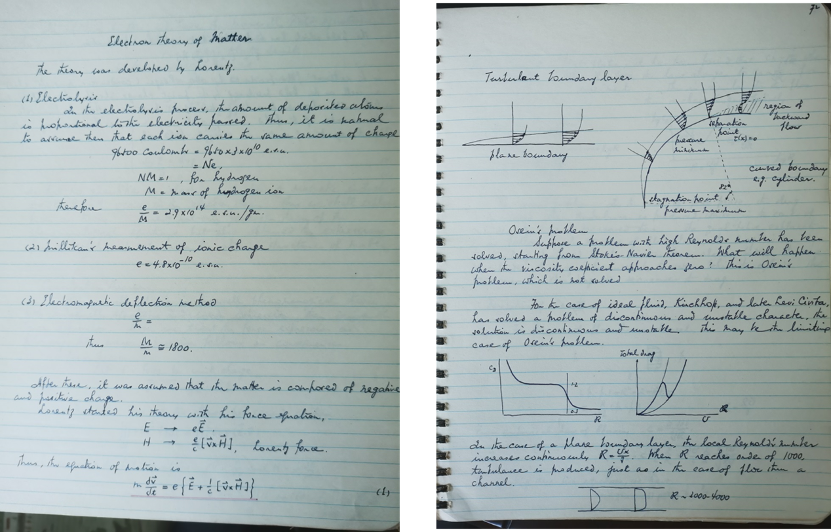 Electron theory of Matter
The theory was developed by Lorentz.
(1) Electrolysis
In the electrolysis process, the amount of deposited atoms
is proportional to the electricity passed. Thus, it is natural
to assume then that each ion carries the same amount of charge
96500 Coulombs = 9650 x 3 x 10^10 e.s.u.
= Ne,
NM = 1, for hydrogen
M = mass of hydrogen ion
therefore e/M = 2.9 x 10^14 e.s.u./gr.
(2) Millikan's measurement of ionic charge
e = 4.8 x 10^-10 e.s.u.
(3) Electromagnetic deflection method
e/m =
thus M/m ≅ 1800.
After these, it was assumed that the matter is composed of negative
and positive charge.
Lorentz started his theory with his force equation,
E → eE⃗.
H → e/c [v⃗ x H⃗], Lorentz force.
Thus, the equation of motion is
m dv⃗/dt = e { E⃗ + 1/c [v⃗ x H⃗] }
(1)
72
Turbulent boundary layer
region of
backward
flow
separation
point
τ(x)=0
pressure
minimum
plane boundary
curved boundary
e.g. cylinder.
stagnation point
pressure maximum
Oseen's problem
Suppose a problem with high Reynolds number has been
solved, starting from Stokes Navier theorem. What will happen
when the viscosity coefficient approaches zero? This is Oseen's
problem, which is not solved
For the case of ideal fluid, Kirchhoff, and late Levi Civita,
has solved a problem of discontinuous and unstable character, the
solution is discontinuous and unstable. This may be the limiting
case of Oseen's problem.
Total drag
R
U
In the case of a plane boundary layer, the local Reynold's number
increases continuously R = Ux/ν. When R reaches order of 1000,
turbulence is produced, just as in the case of flow thru a
channel.
R ~ 1000-4000